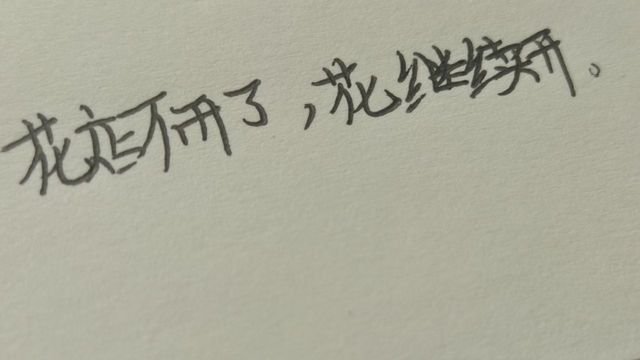 花店不开了,花继续开。